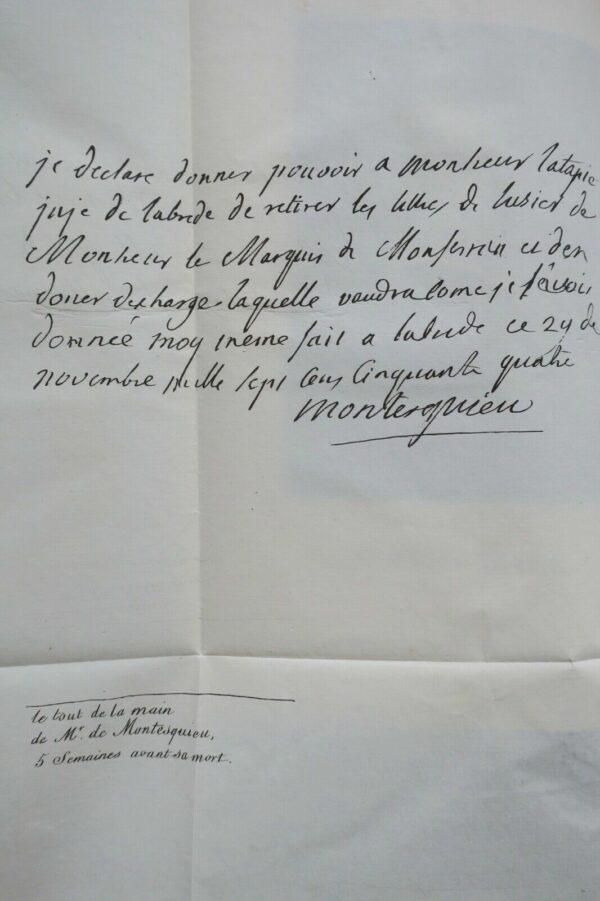 je declare donner pouvoir a monsieur latapie
juje de labrede de retirer les titres de
Monsieur le Marquis de Monferrein et den
doner decharge laquelle vaudra come je l'avois
donnée moy meme fait a labrede ce 24 de
novembre mille sept cens cinquante quatre
montesquieu
le tout de la main
de Mr. de Montesquieu,
5 Semaines avant sa mort.